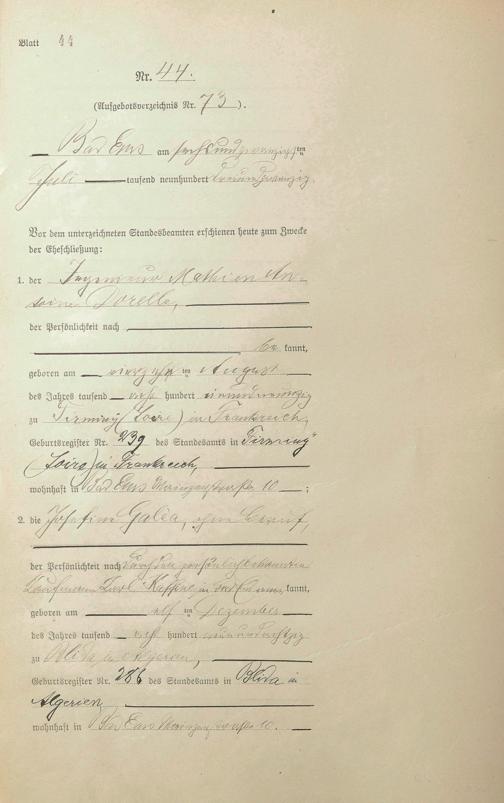 Blatt 44
Nr. 44.
(Aufgebotsverzeichnis Nr. 73).
Bad Ems am sechsundzwanzigsten
Juli tausend neunhundert
Vor dem unterzeichneten Standesbeamten erschienen heute zum Zwecke
der Eheschließung:
1. der Ingenieur Mathieu An-
toine
der Persönlichkeit nach
be kannt,
geboren am vierzehn ten August
des Jahres tausend acht hundert
zu Firminy (Loire) in Frankreich,
Geburtsregister Nr. 239 des Standesamts in Firminy
in Frankreich,
wohnhaft in Bad Ems 10;
2. die Josefine Galea, ohne Beruf,
der Persönlichkeit nach durch den
Kaufmann Karl kannt,
geboren am elf ten Dezember
des Jahres tausend acht hundert
zu Blida in Algerien,
Geburtsregister Nr. 286 des Standesamts in Blida in
Algerien,
wohnhaft in Bad Ems 10.